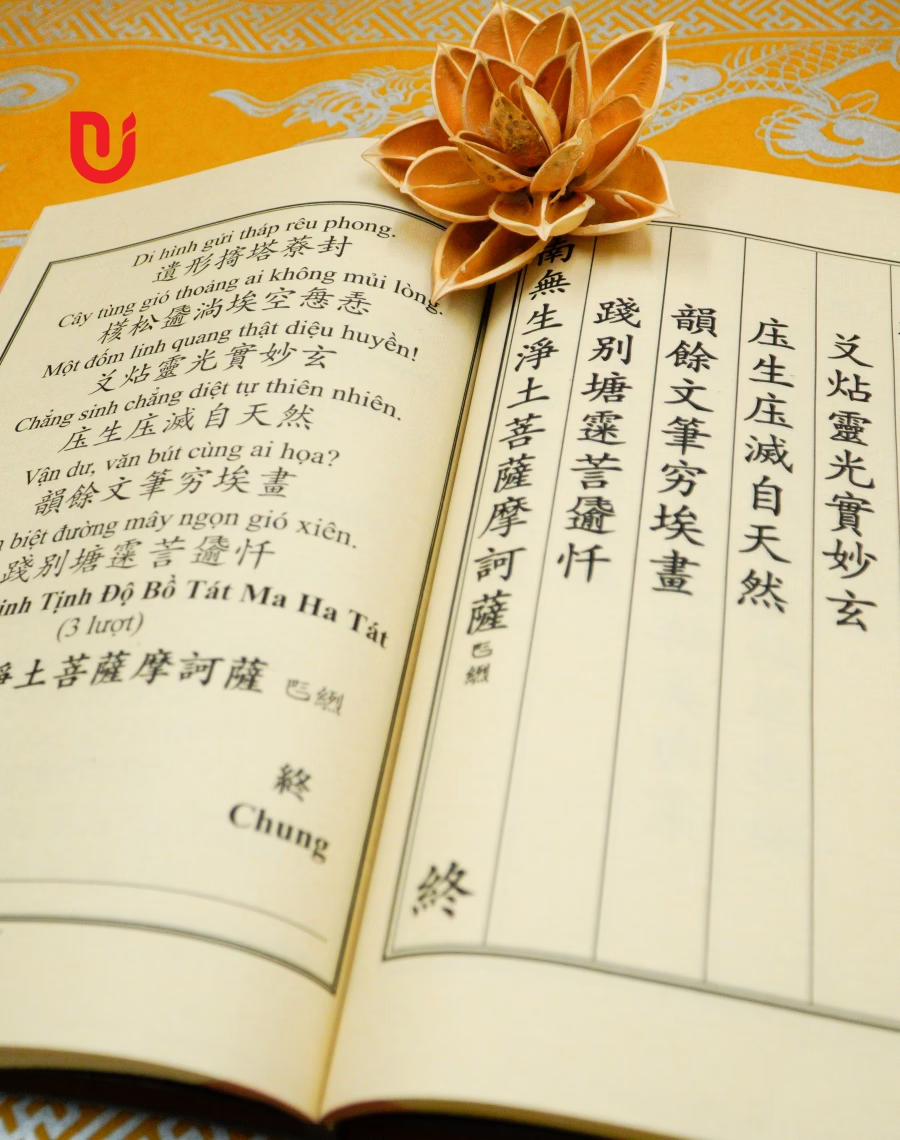 Di hình gửi tháp rêu phong.
遺形塔封
Cây tùng gió thoảng ai không mủi lòng.
松淌埃空
Một đốm linh quang thật diệu huyền!
𠬠炶靈光實妙玄
Chẳng sinh chẳng diệt tự thiên nhiên.
庒生庒滅自天然
Vận dư, văn bút cùng ai họa?
韻餘文筆穷埃畫
biệt đường mây ngọn gió xiên.
踐別塘忏
Tịnh Độ Bồ Tát Ma Ha Tát
(3 lượt)
土菩薩摩訶薩
終
Chung
𠬠炶靈光實妙玄
庒生庒滅自天然
韻餘文筆穷埃畫
踐別塘忏
南無生淨土菩薩摩訶薩
終